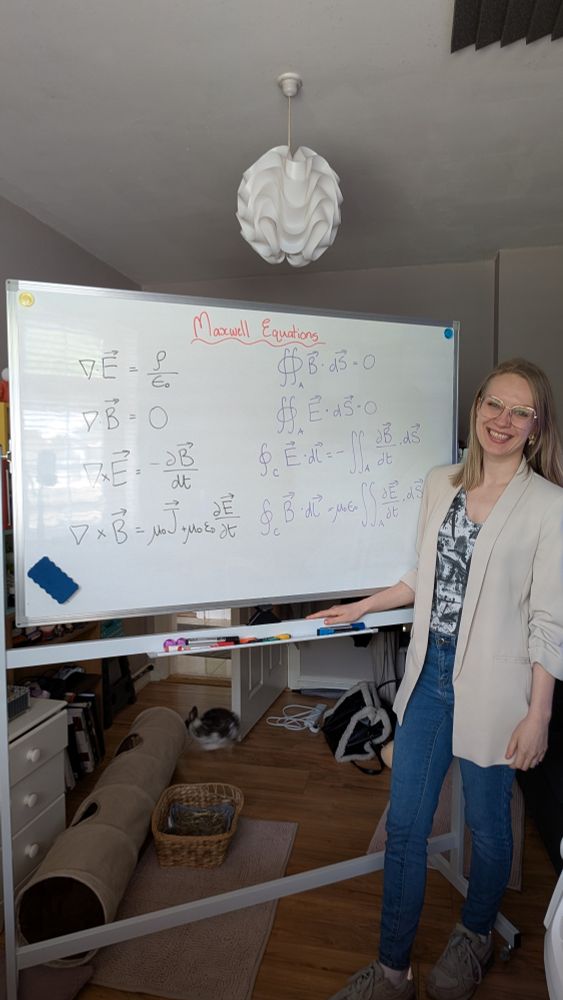 Maxwell Equations
∇·E⃗ = ρ/ε₀
∇·B⃗ = 0
∇×E⃗ = -∂B⃗/dt
∇×B⃗ = μ₀J⃗ + μ₀ε₀ ∂E⃗/∂t
∯_A B⃗·dS⃗ = 0
∯_A E⃗·dS⃗ = 0
∮_C E⃗·dl⃗ = -∬_A ∂B⃗/∂t · dS⃗
∮_C B⃗·dl⃗ = μ₀ε₀ ∬_A ∂E⃗/∂t · dS⃗